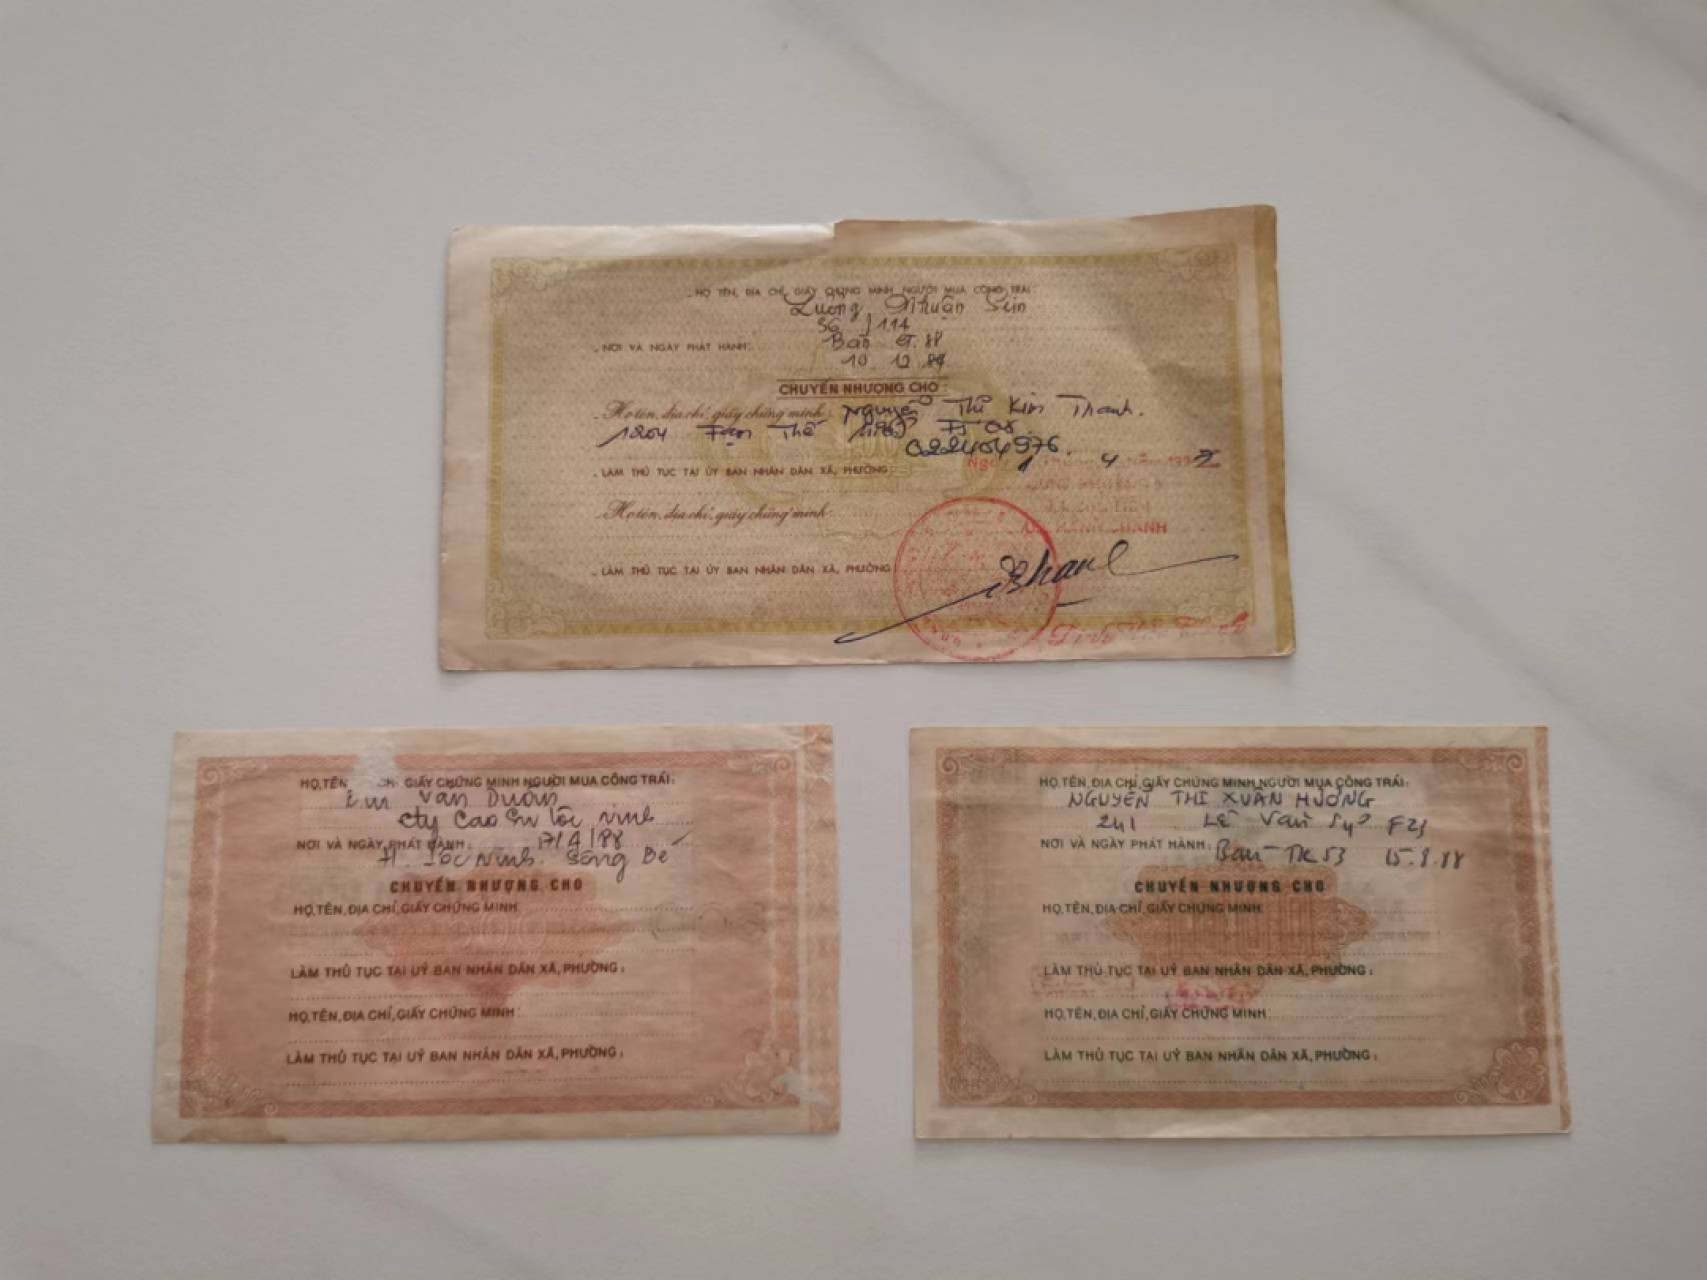 HỌ TÊN, ĐỊA CHỈ, GIẤY CHỨNG MINH NGƯỜI MUA CÔNG TRÁI:
Lương Nhuận
56 / 114
NƠI VÀ NGÀY PHÁT HÀNH:
10 12
CHUYỂN NHƯỢNG CHO:
Họ tên, địa chỉ, giấy chứng minh: Nguyễn Thị Kim Thanh.
022404976
LÀM THỦ TỤC TẠI ỦY BAN NHÂN DÂN XÃ, PHƯỜNG:
Họ tên, địa chỉ, giấy chứng minh:
LÀM THỦ TỤC TẠI ỦY BAN NHÂN DÂN XÃ, PHƯỜNG
HỌ, TÊN GIẤY CHỨNG MINH NGƯỜI MUA CÔNG TRÁI:
Văn
cty Cao Su Lộc ninh
NƠI VÀ NGÀY PHÁT HÀNH: 17/4/88
H. Lộc Ninh. Sông Bé
CHUYỂN NHƯỢNG CHO
HỌ, TÊN, ĐỊA CHỈ, GIẤY CHỨNG MINH
LÀM THỦ TỤC TẠI UỶ BAN NHÂN DÂN XÃ, PHƯỜNG:
HỌ, TÊN, ĐỊA CHỈ, GIẤY CHỨNG MINH:
LÀM THỦ TỤC TẠI UỶ BAN NHÂN DÂN XÃ, PHƯỜNG:
HỌ, TÊN, ĐỊA CHỈ, GIẤY CHỨNG MINH NGƯỜI MUA CÔNG TRÁI:
NGUYỄN THỊ XUÂN HƯƠNG
241 LÊ Văn Sỹ
NƠI VÀ NGÀY PHÁT HÀNH: Ban TK53 15.8.88
CHUYỂN NHƯỢNG CHO
HỌ, TÊN, ĐỊA CHỈ, GIẤY CHỨNG MINH
LÀM THỦ TỤC TẠI UỶ BAN NHÂN DÂN XÃ, PHƯỜNG:
HỌ, TÊN, ĐỊA CHỈ, GIẤY CHỨNG MINH:
LÀM THỦ TỤC TẠI UỶ BAN NHÂN DÂN XÃ, PHƯỜNG: